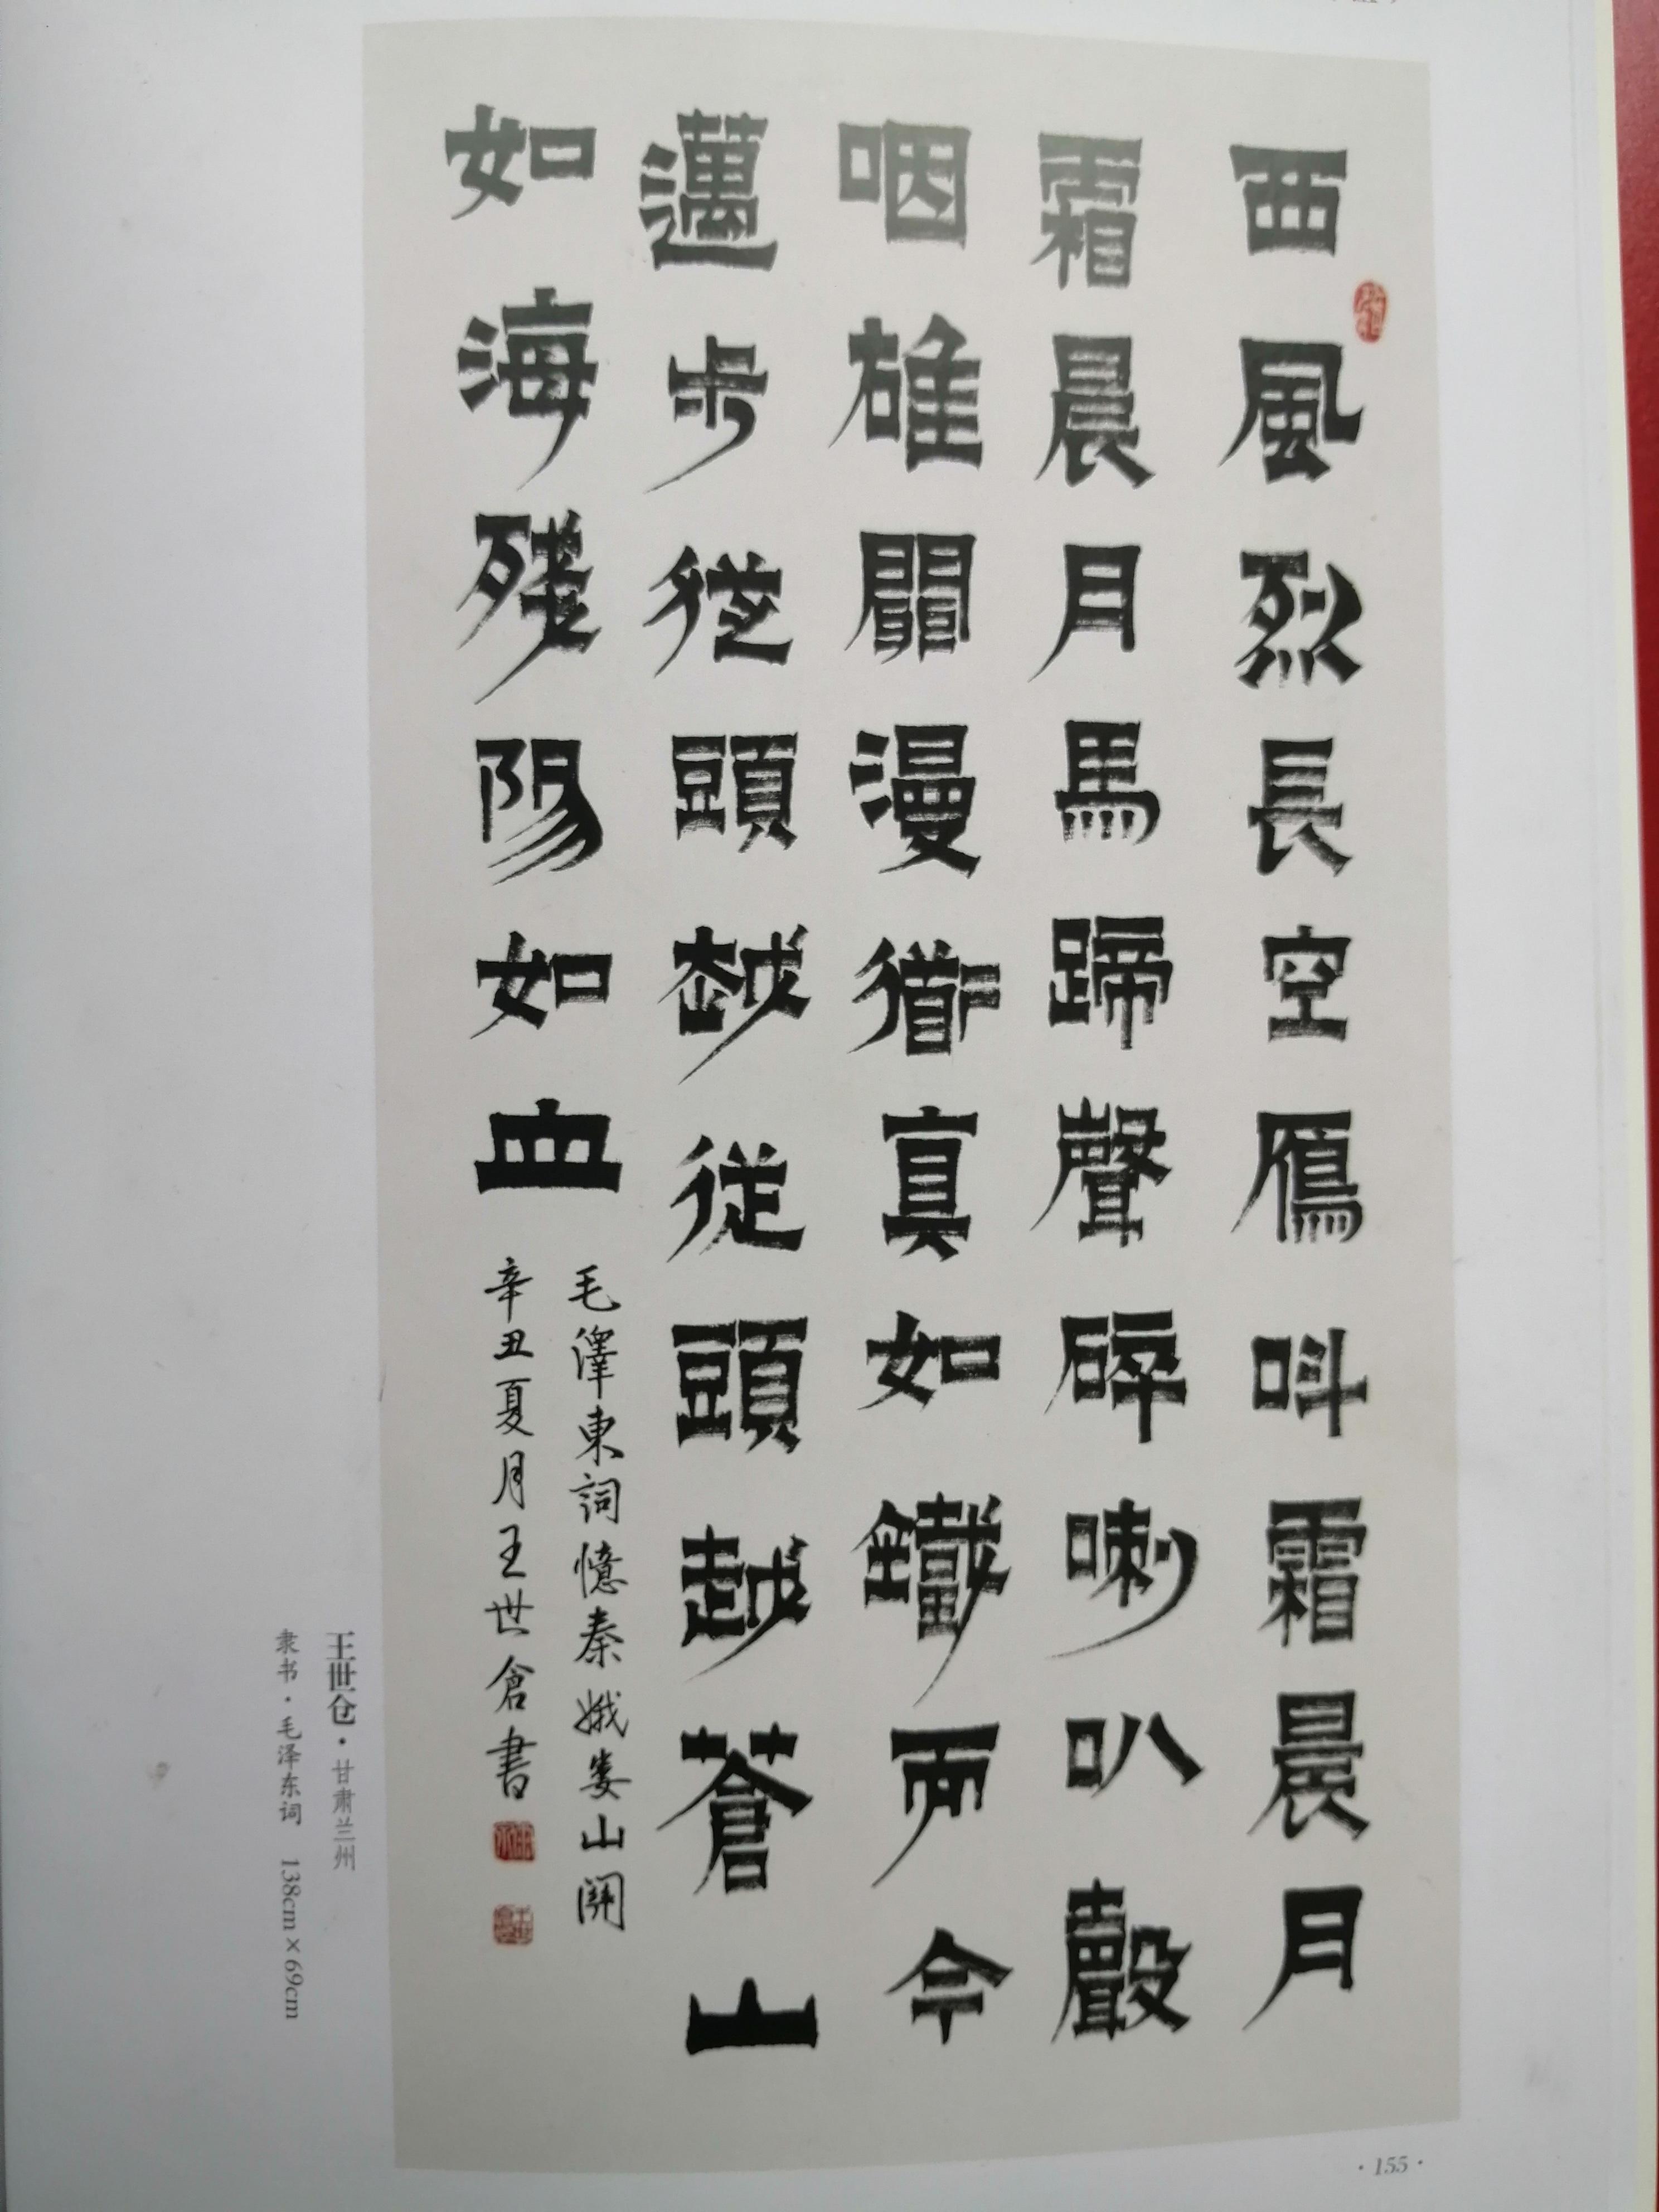 西風烈長空鴈呌霜晨月
霜晨月馬蹄聲碎喇叭聲
咽雄關漫衜真如鐵而今
邁步從頭越從頭越蒼山
如海殘陽如血
毛澤東詞憶秦娥婁山關
辛丑夏月王世倉書
王世仓·甘肃兰州
隶书·毛泽东词 138cm×69cm
·155·